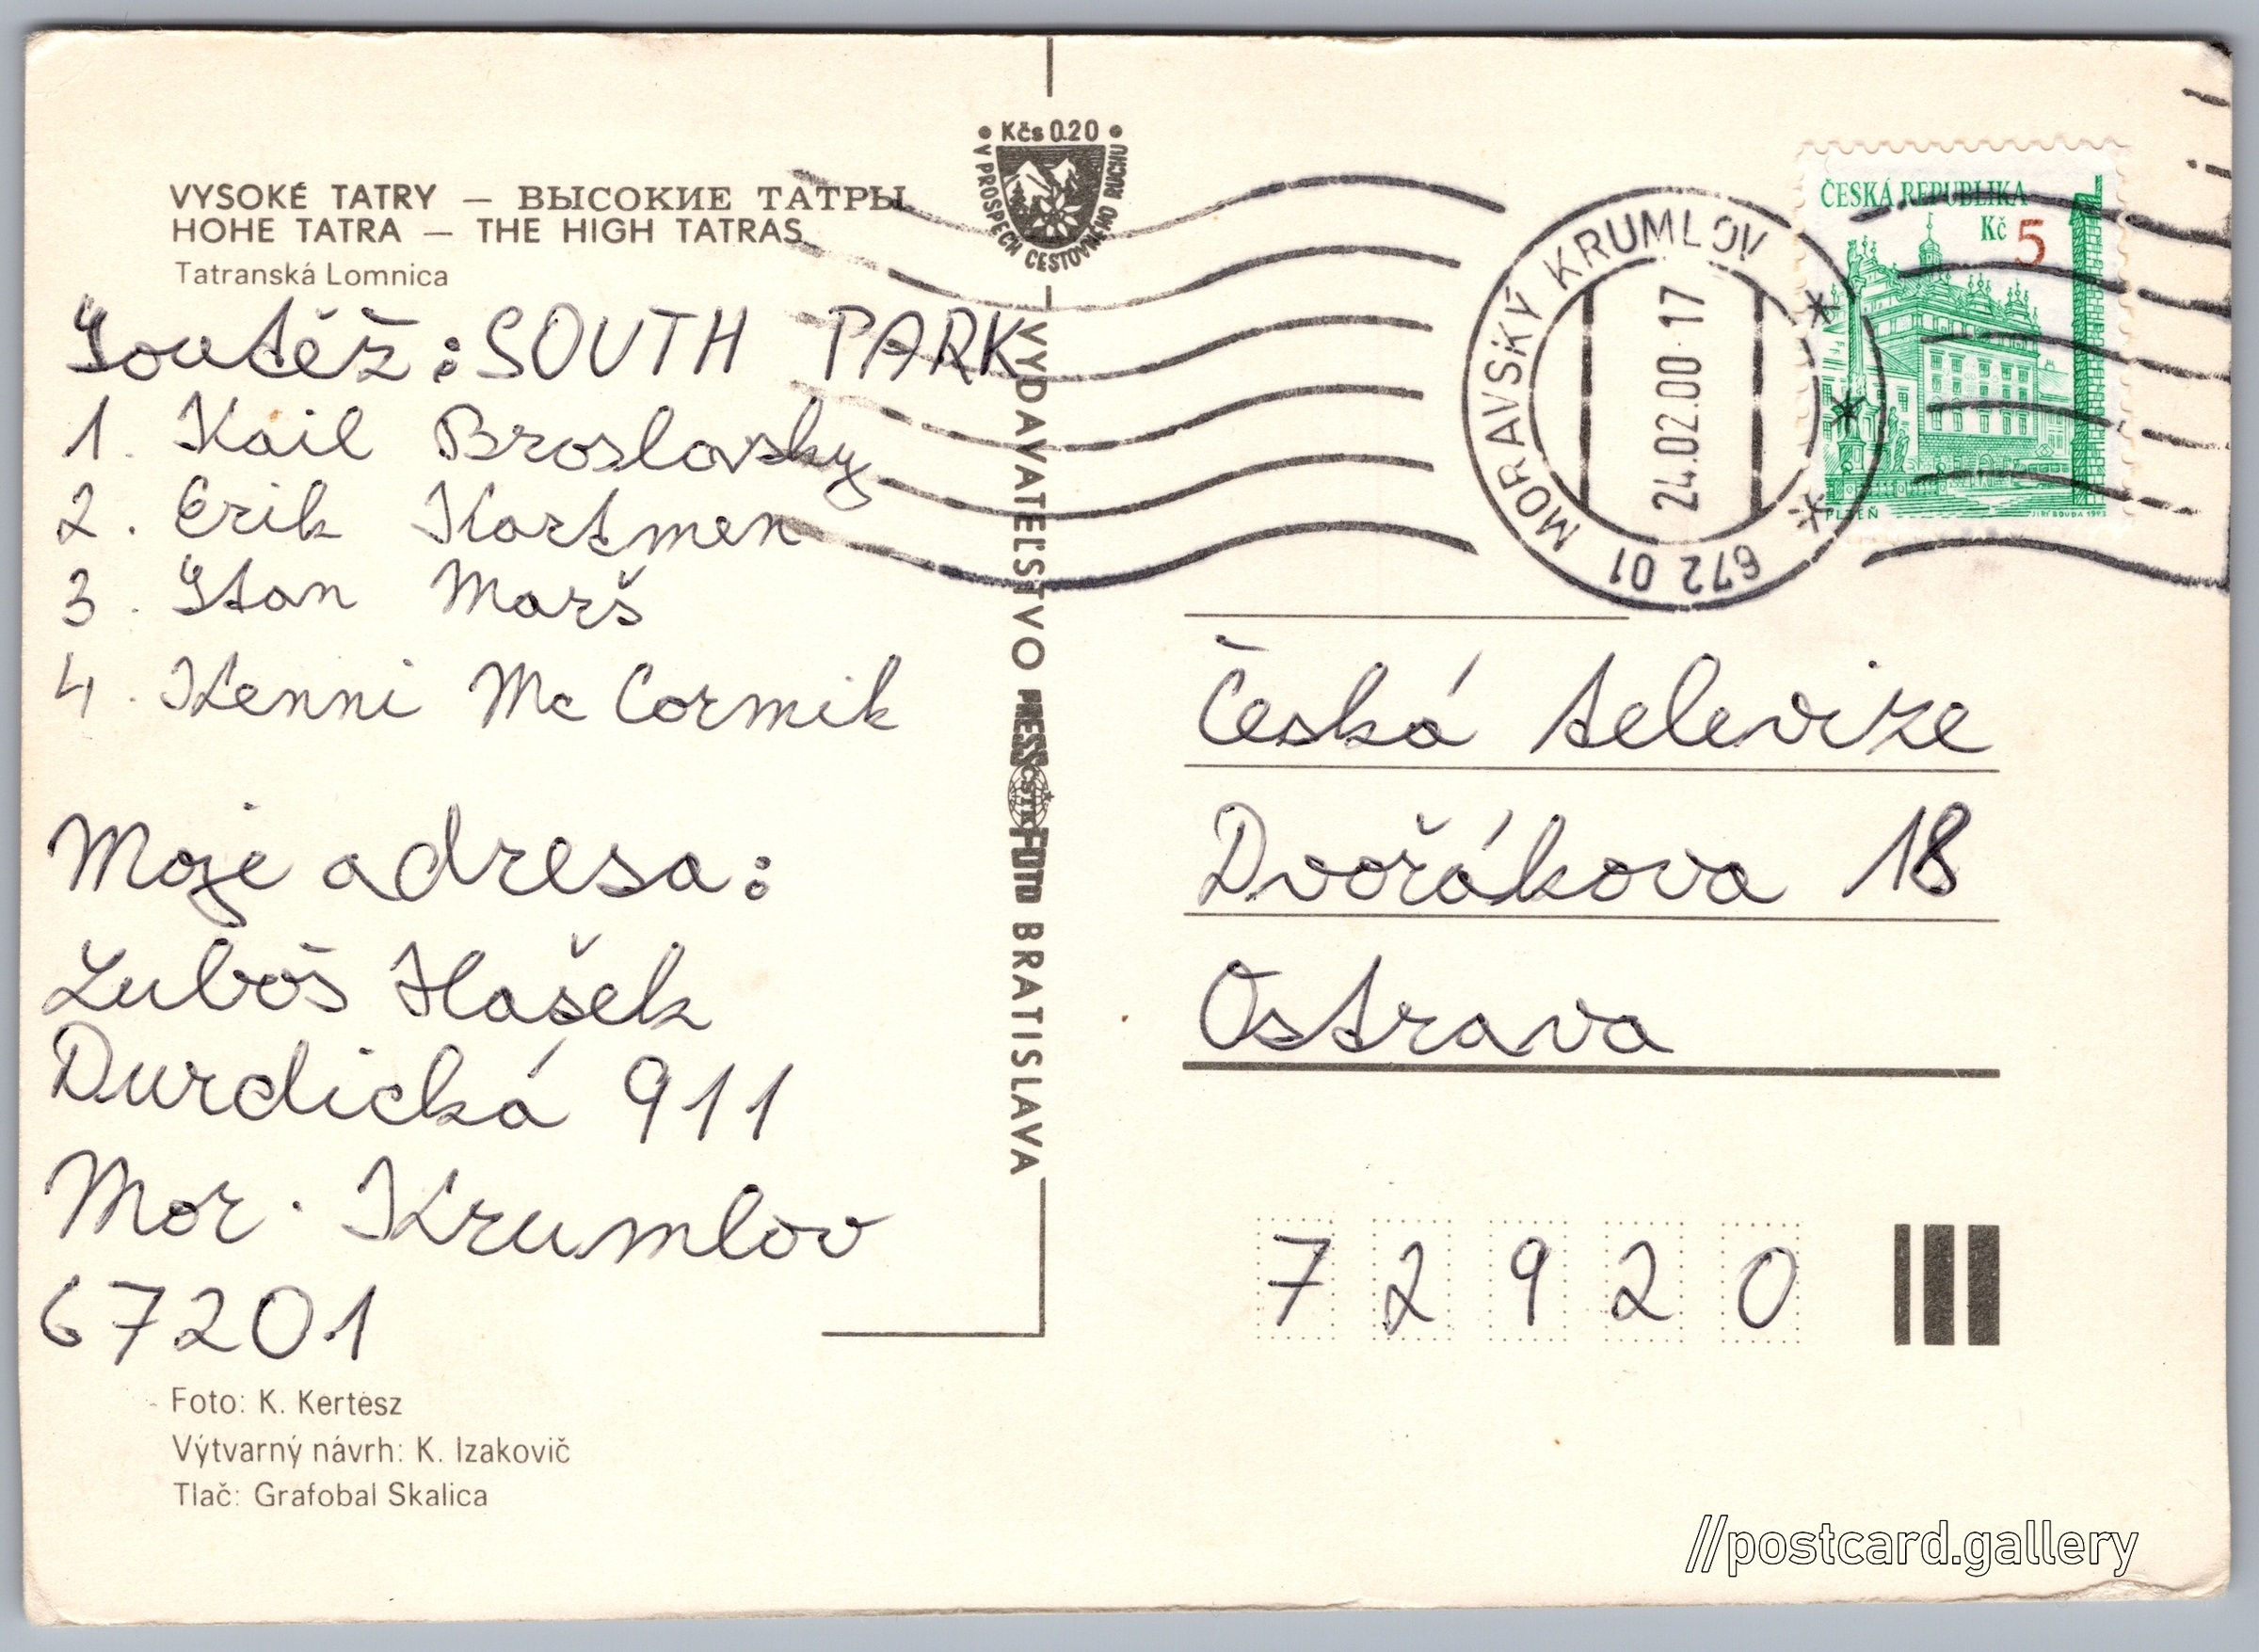 Kčs 0.20
V PROSPECH CESTOVNÉHO RUCHU
VYSOKÉ TATRY — ВЫСОКИЕ ТАТРЫ
HOHE TATRA — THE HIGH TATRAS
Tatranská Lomnica
Soutěž: SOUTH PARK
1. Kail Broslovsky
2. Erik Kartmen
3. Stan Marš
4. Kenni Mc Cormik
Moje adresa:
Luboš Hašek
Durdická 911
Mor. Krumlov
67201
Foto: K. Kertész
Výtvarný návrh: K. Izakovič
Tlač: Grafobal Skalica
VYDAVATEĽSTVO PRESSFOTO BRATISLAVA
ČSTK
672 01 MORAVSKÝ KRUMLOV
24.02.00-17
ČESKÁ REPUBLIKA
Kč 5
PLZEŇ JIŘÍ BOUDA 1993
Česká televize
Dvořákova 18
Ostrava
72920
//postcard.gallery